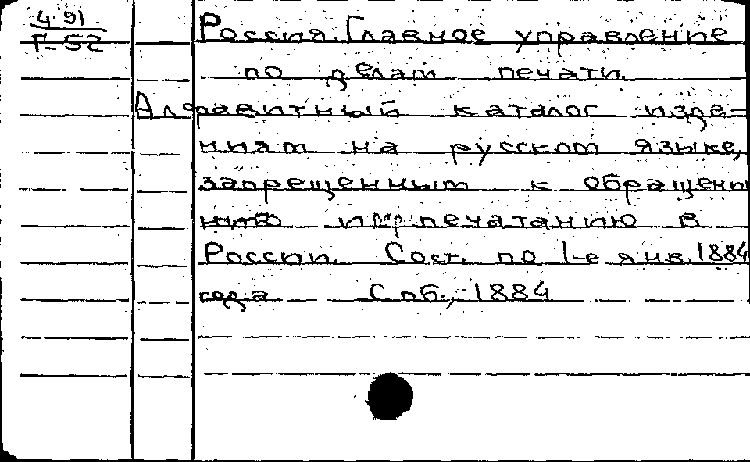 4.91
Г-52
Россия. Главное управление
по делам печати.
Алфавитный каталог изда-
ниям на русском языке,
запрещенным к обращени
нию и перепечатанию в
России. Сост. по 1-е янв. 1884
года Спб., 1884